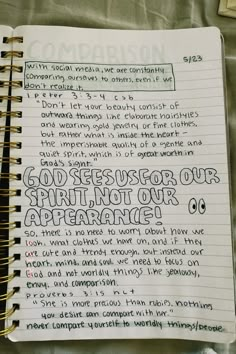 COMPARISON
5/23
with social media, we are constantly
comparing ourselves to others, even if we
don't realize it.
1 peter 3:3-4 csb
"Don't let your beauty consist of
outward things like elaborate hairstyles
and wearing gold jewelry or fine clothes,
but rather what is inside the heart -
the imperishable quality of a gentle and
quiet spirit, which is of great worth in
God's sight."
GOD SEES US FOR OUR
SPIRIT, NOT OUR
APPEARANCE!
so, there is no need to worry about how we
look, what clothes we have on, and if they
are cute and trendy enough, but instead our
heart, mind, and soul. we need to focus on
God and not worldly things like jealousy,
envy, and comparison.
proverbs 3:15 nlt
"She is more precious than rubies, nothing
you desire can compare with her."
never compare yourself to worldly things/people